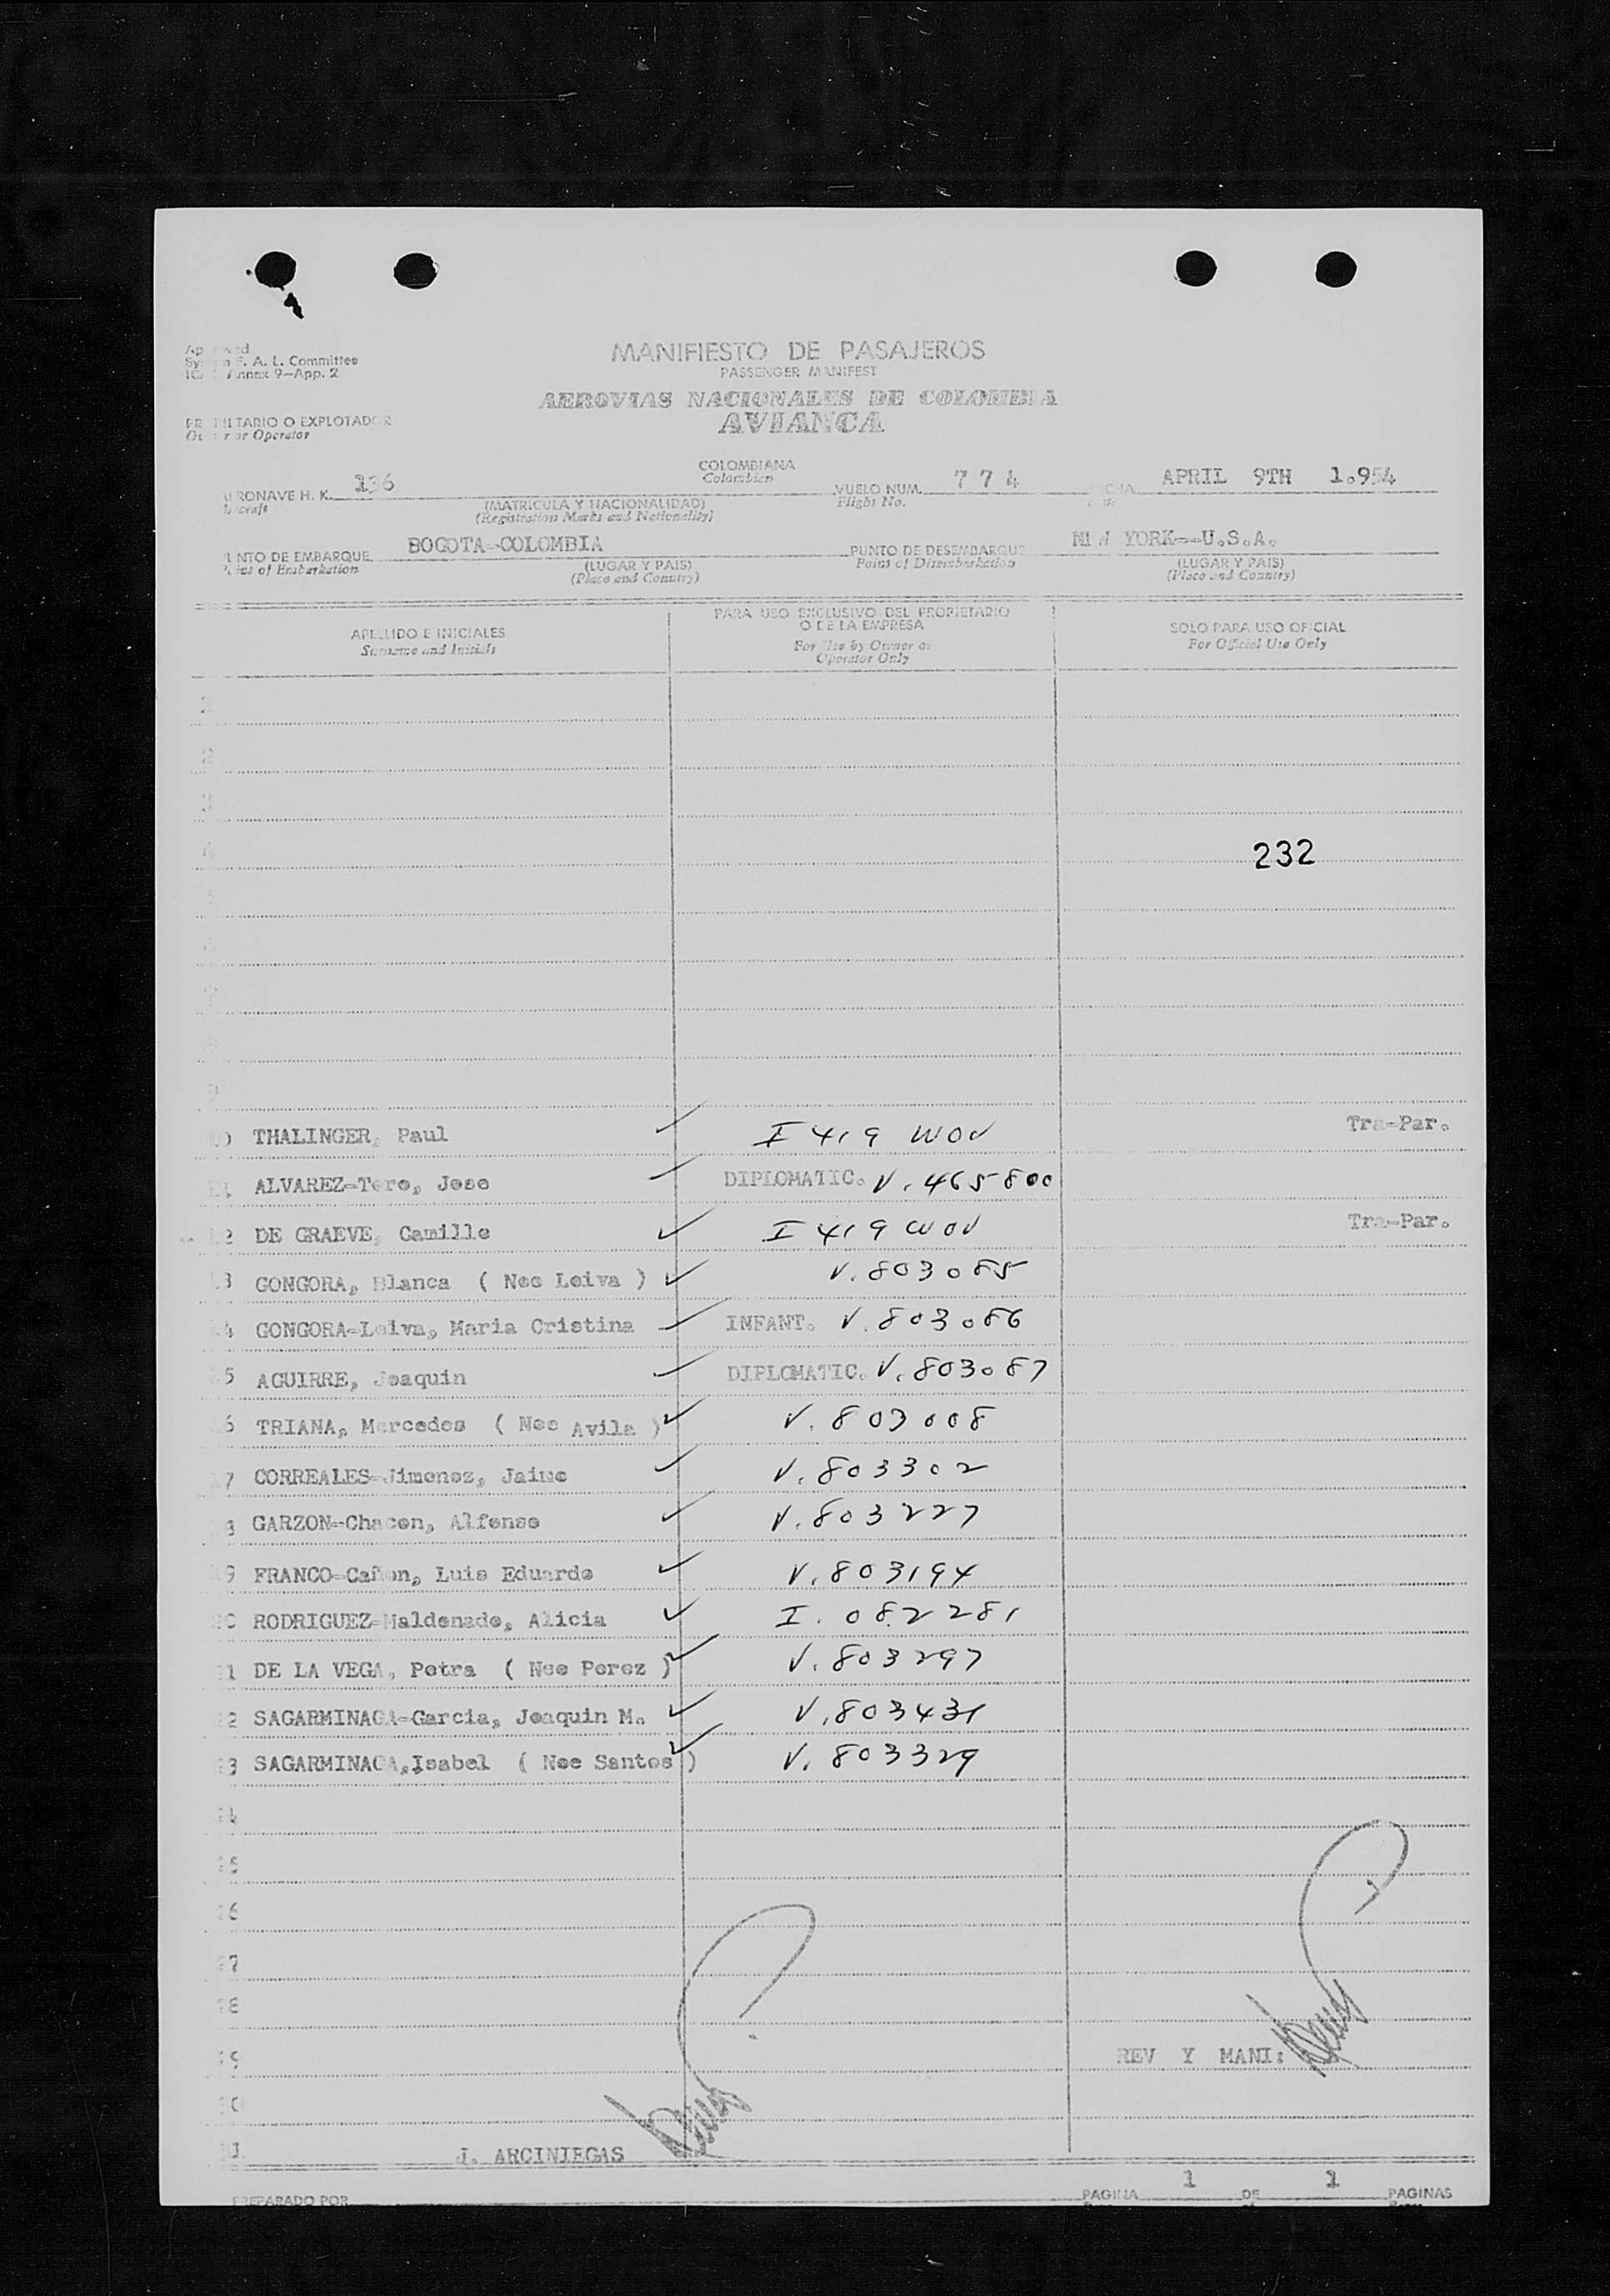 MANIFIESTO DE PASAJEROS
PASSENGER MANIFEST
F. A. L. Committee
Annex 9—App. 2
AEROVIAS NACIONALES DE COLOMBIA
AVIANCA
O EXPLOTADOR
or Operator
H. K. 136
COLOMBIANA
Colombian
(MATRICULA Y NACIONALIDAD)
(Registration Marks and Nationality)
VUELO NUM. 774
Flight No.
APRIL 9TH 1.954
DE EMBARQUE BOGOTA-COLOMBIA
of Embarkation
(LUGAR Y PAIS)
(Place and Country)
PUNTO DE DESEMBARQUE YORK--U.S.A.
Point of Disembarkation
(LUGAR Y PAIS)
(Place and Country)
APELLIDO E INICIALES
Surname and Initials
PARA USO EXCLUSIVO DEL PROPIETARIO
O DE LA EMPRESA
For Use by Owner or
Operator Only
SOLO PARA USO OFICIAL
For Official Use Only
232
THALINGER, Paul I 419 WOV Tra-Par.
ALVAREZ-Toro, Jose DIPLOMATIC. V. 465800
DE GRAEVE, Camille I 419 WOV Tra-Par.
GONGORA, Blanca ( Nee Leiva ) V. 803085
GONGORA-Leiva, Maria Cristina INFANT. V. 803086
AGUIRRE, Joaquin DIPLOMATIC. V. 803087
TRIANA, Mercedes ( Nee Avila ) V. 803008
CORREALES-Jimenez, Jaime V. 803302
GARZON-Chacon, Alfonso V. 803227
FRANCO-Cañon, Luis Eduardo V. 803194
RODRIGUEZ-Maldonado, Alicia I. 082281
DE LA VEGA, Petra ( Nee Perez ) V. 803297
SAGARMINAGA-Garcia, Joaquin M. V. 803431
SAGARMINAGA, Isabel ( Nee Santos ) V. 803329
24
25
26
27
28
29
REV Y MANI:
J. ARCINIEGAS
PREPARADO POR
PAGINA 1 DE 1 PAGINAS